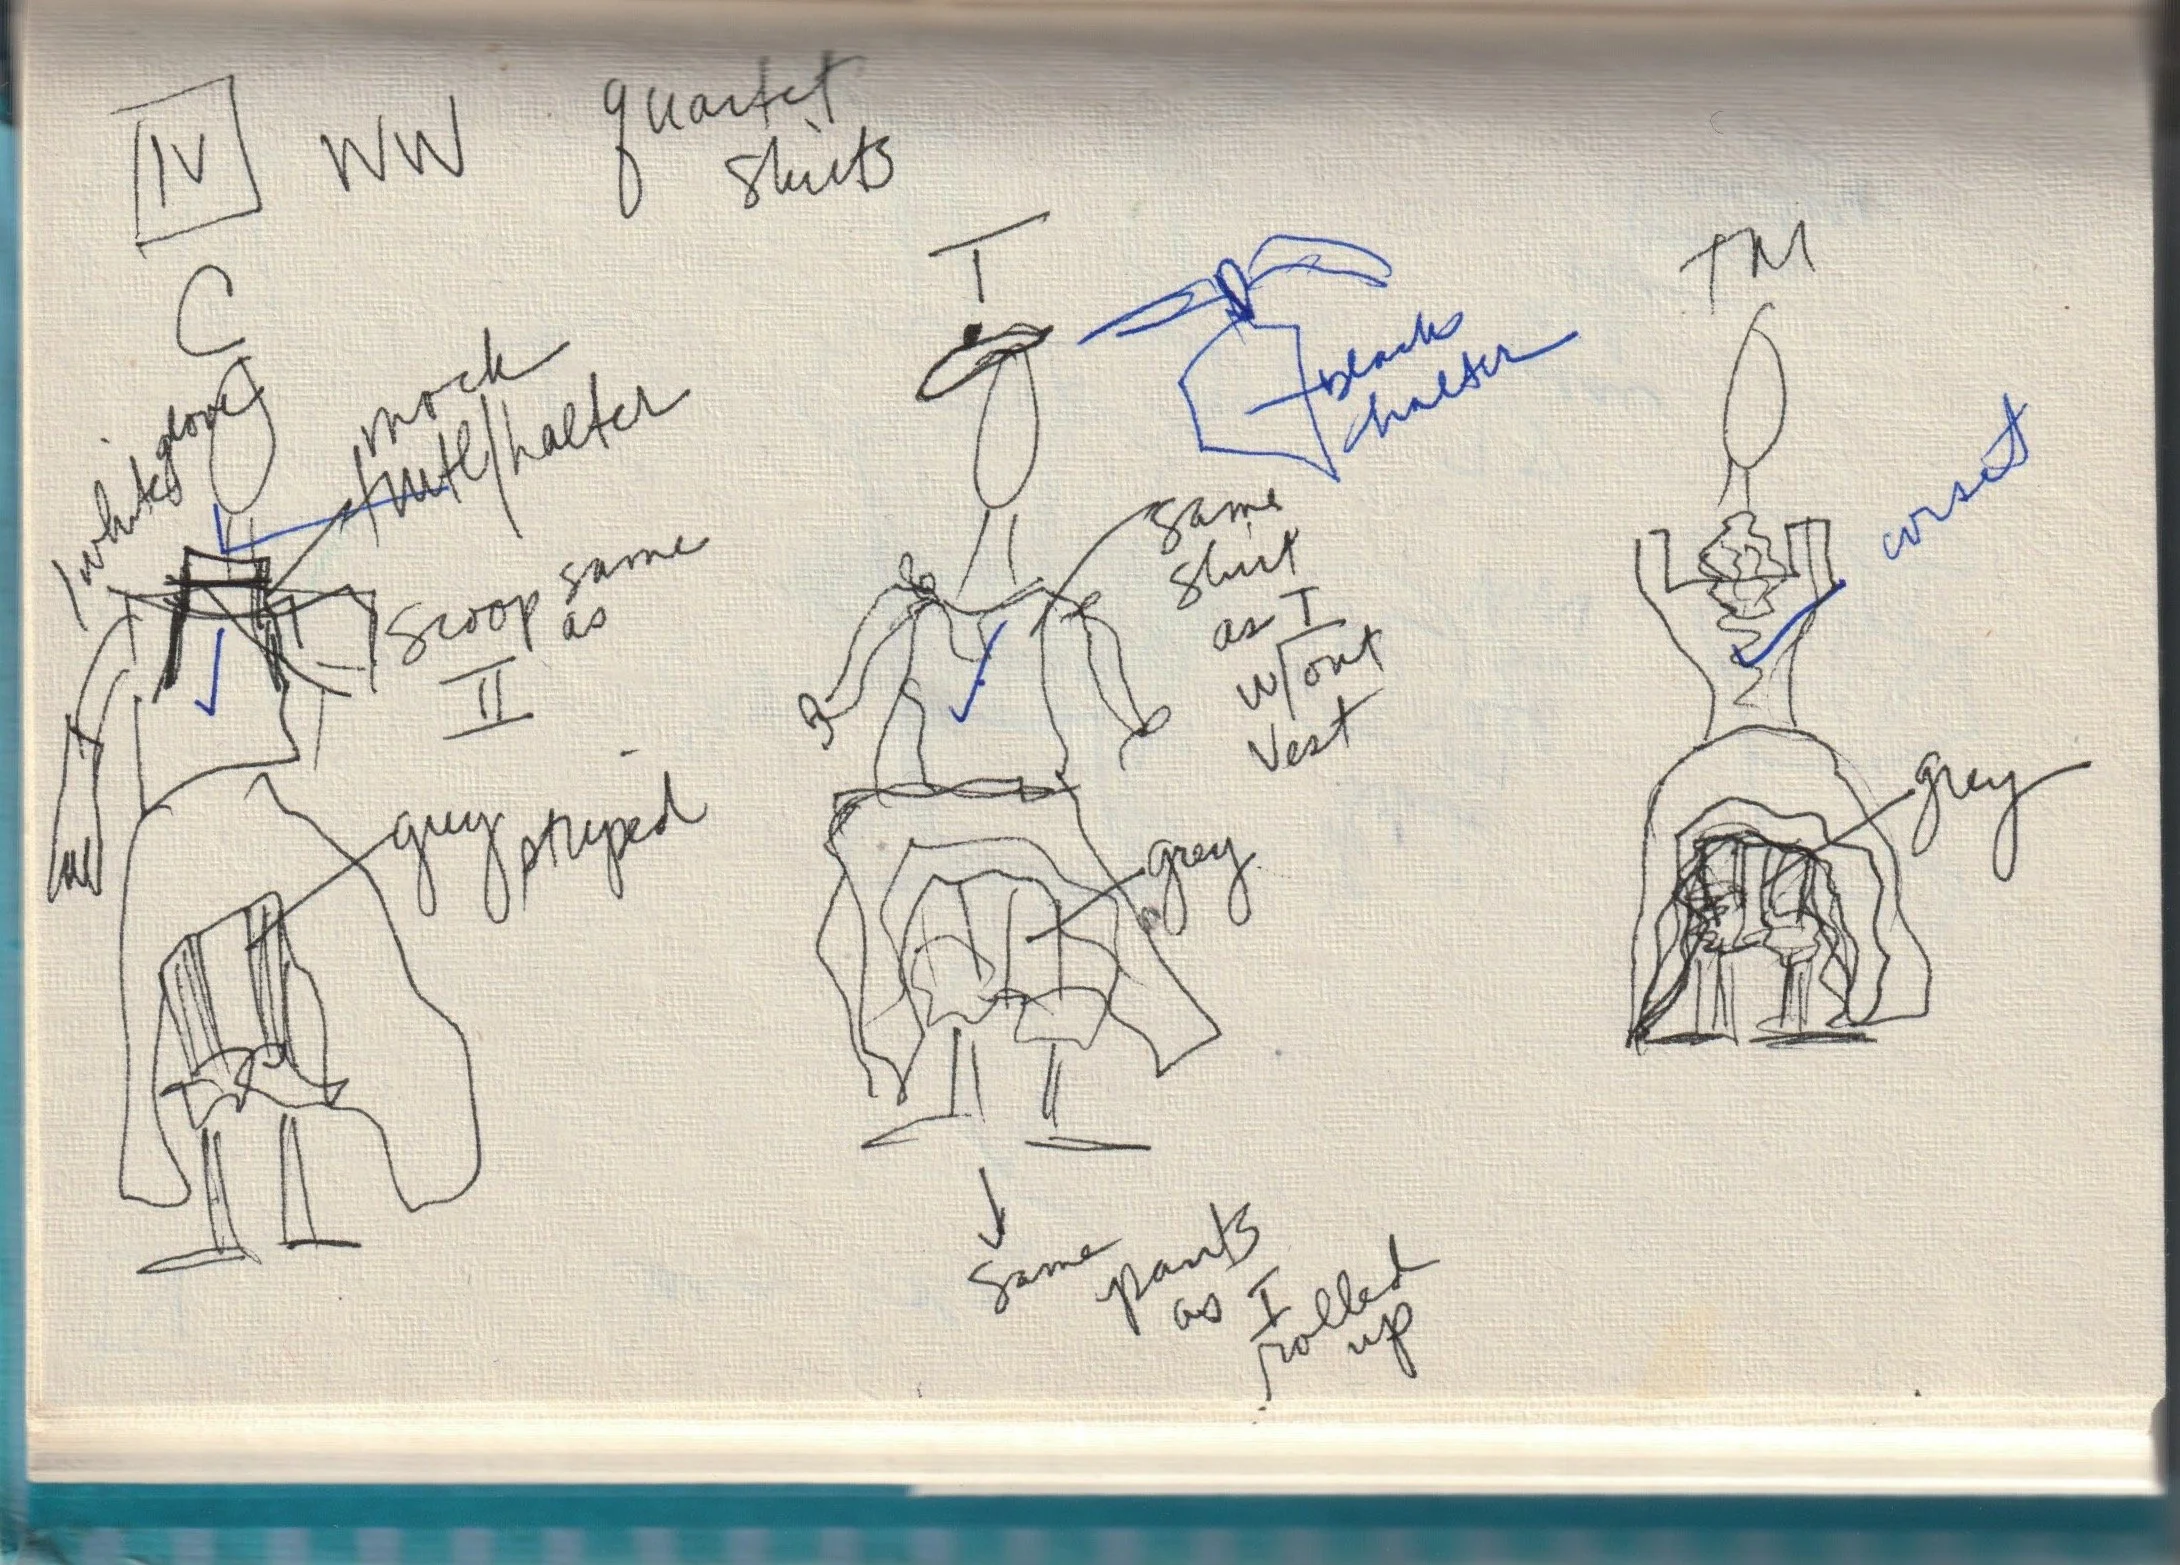 IV WW quartet
skirts
C
T
TM
1 white glove
mock
trtl/halter
scoop same
as
II
grey
striped
black
halter
same
shirt
as I
w/out
vest
grey
same pants
as I
rolled
up
corset
grey